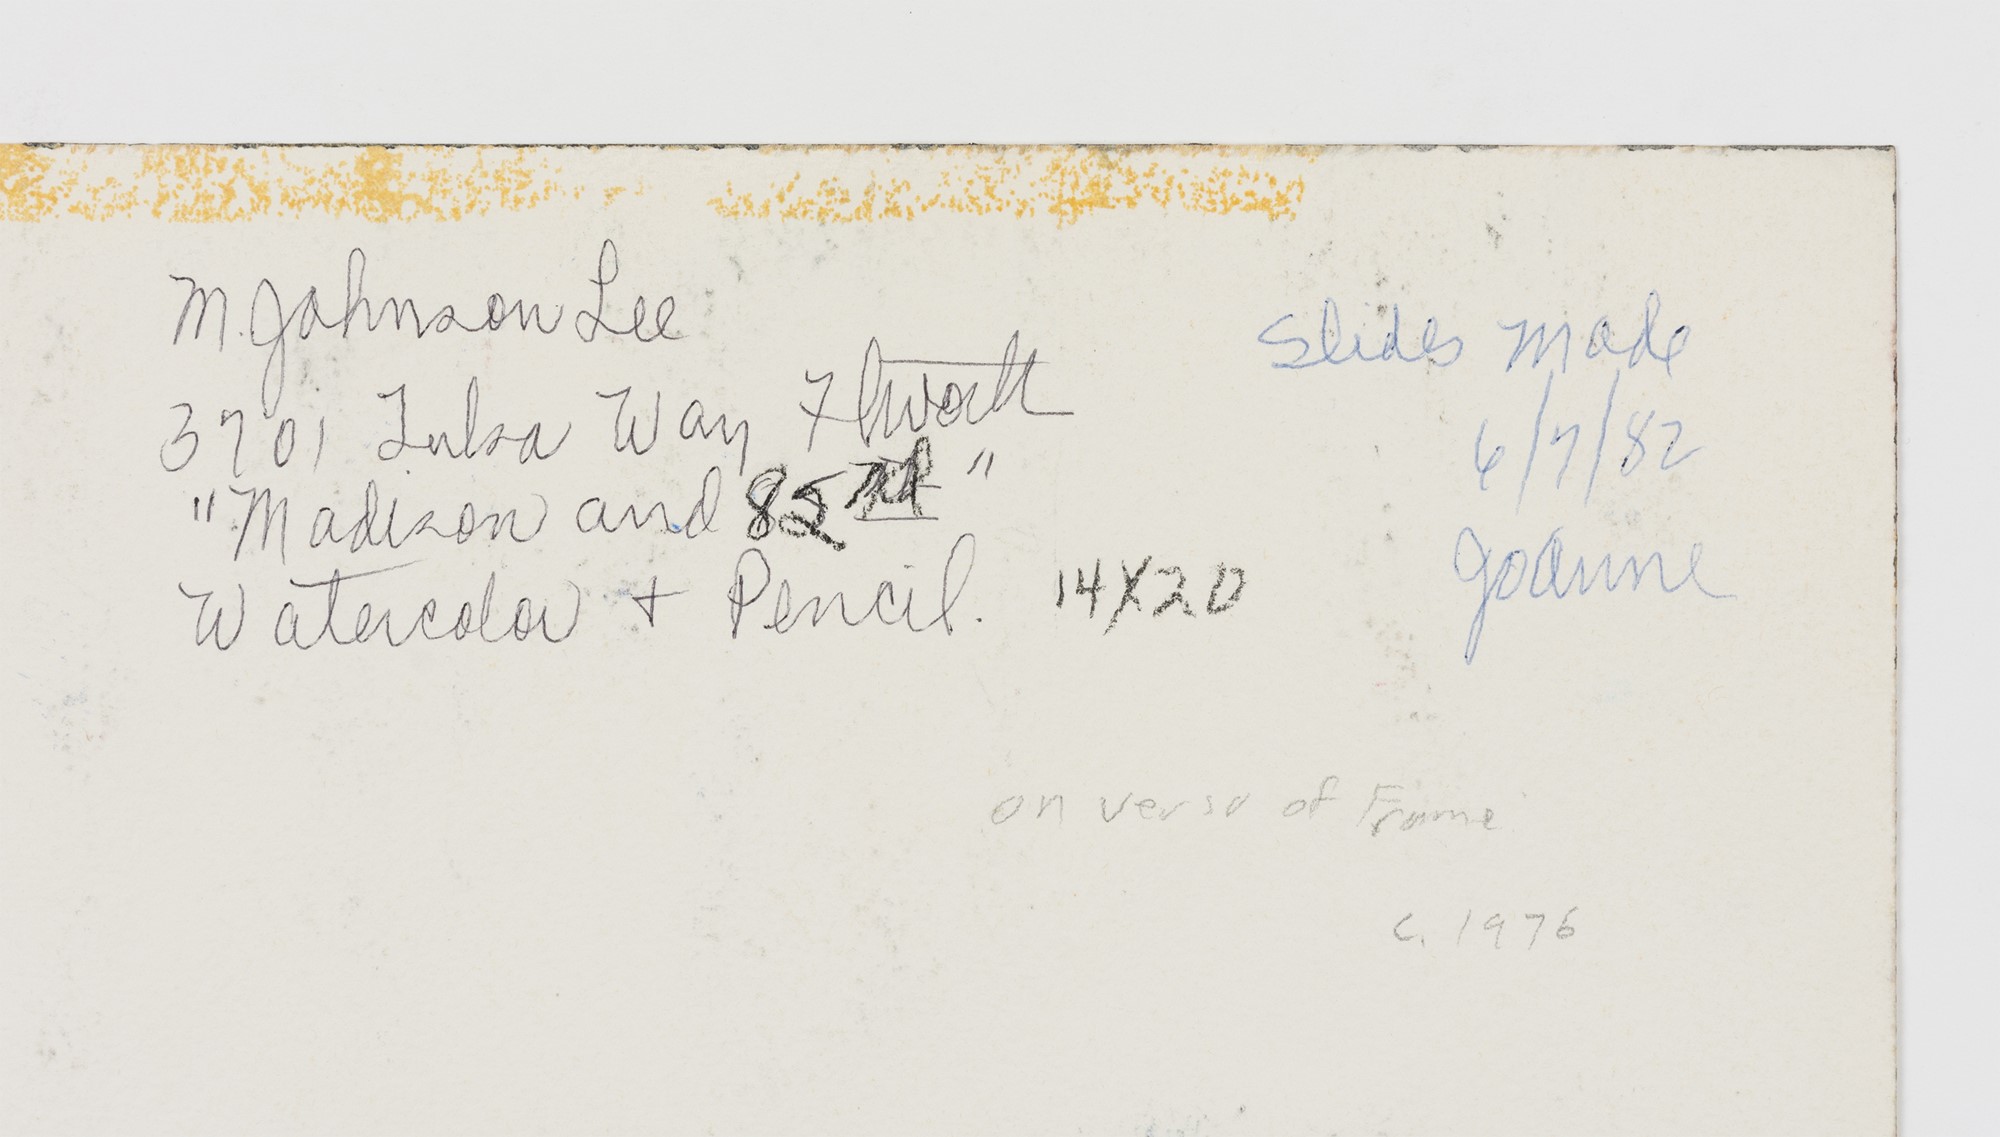 M. Johnson Lee
3701 Tulsa Way Ft Worth
"Madison and 85th"
Watercolor + Pencil. 14X20
Slides Made
6/7/82
JoAnne
on verso of Frame
c. 1976